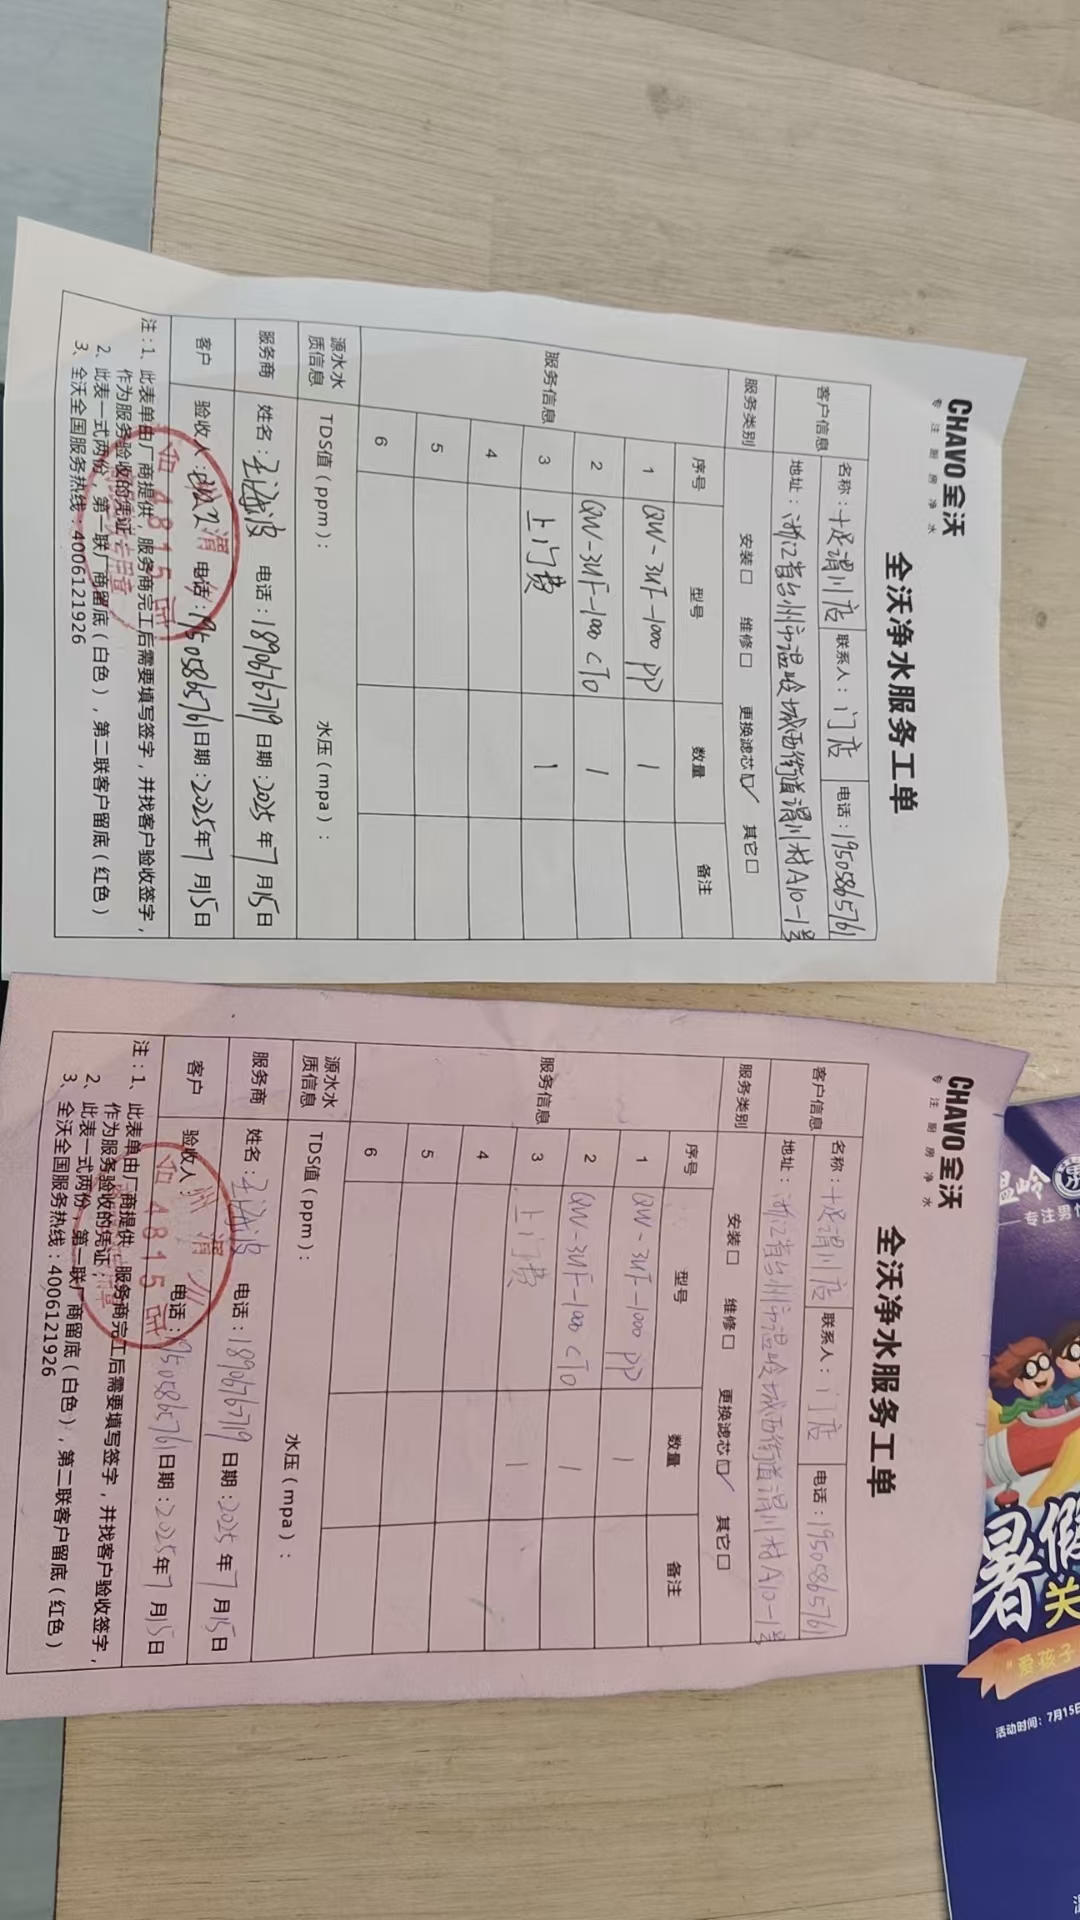 CHAVO全沃
专注厨房净水
全沃净水服务工单
客户信息 名称：十足渭川店 联系人：门店 电话：19505865761
地址：浙江省台州市温岭城西街道渭川村A10-1号
服务类别 安装□ 维修□ 更换滤芯☑ 其它□
服务信息 序号 型号 数量 备注
1 QW-3UF-1000 PP 1
2 QW-3UF-1000 CTO 1
3 上门费 1
4
5
6
源水水质信息 TDS值（ppm）： 水压（mpa）：
服务商 姓名：王海波 电话：1890676719 日期：2025年7月15日
客户 验收人： 电话：19505865761 日期：2025年7月15日
注：1、此表单由厂商提供，服务商完工后需要填写签字，并找客户验收签字，
作为服务验收的凭证；
2、此表一式两份，第一联厂商留底（白色），第二联客户留底（红色）
3、全沃全国服务热线：4006121926
渭
4815店
CHAVO全沃
专注厨房净水
全沃净水服务工单
客户信息 名称：十足渭川店 联系人：门店 电话：19505865761
地址：浙江省台州市温岭城西街道渭川村A10-1号
服务类别 安装□ 维修□ 更换滤芯☑ 其它□
服务信息 序号 型号 数量 备注
1 QW-3UF-1000 PP 1
2 QW-3UF-1000 CTO 1
3 上门费 1
4
5
6
源水水质信息 TDS值（ppm）： 水压（mpa）：
服务商 姓名：王海波 电话：1890676719 日期：2025年7月15日
客户 验收人： 电话：19505865761 日期：2025年7月15日
注：1、此表单由厂商提供，服务商完工后需要填写签字，并找客户验收签字，
作为服务验收的凭证；
2、此表一式两份，第一联厂商留底（白色），第二联客户留底（红色）
3、全沃全国服务热线：4006121926
州渭川
4815店
温岭
专注男性
暑假
关
"爱孩子
活动时间：7月15日